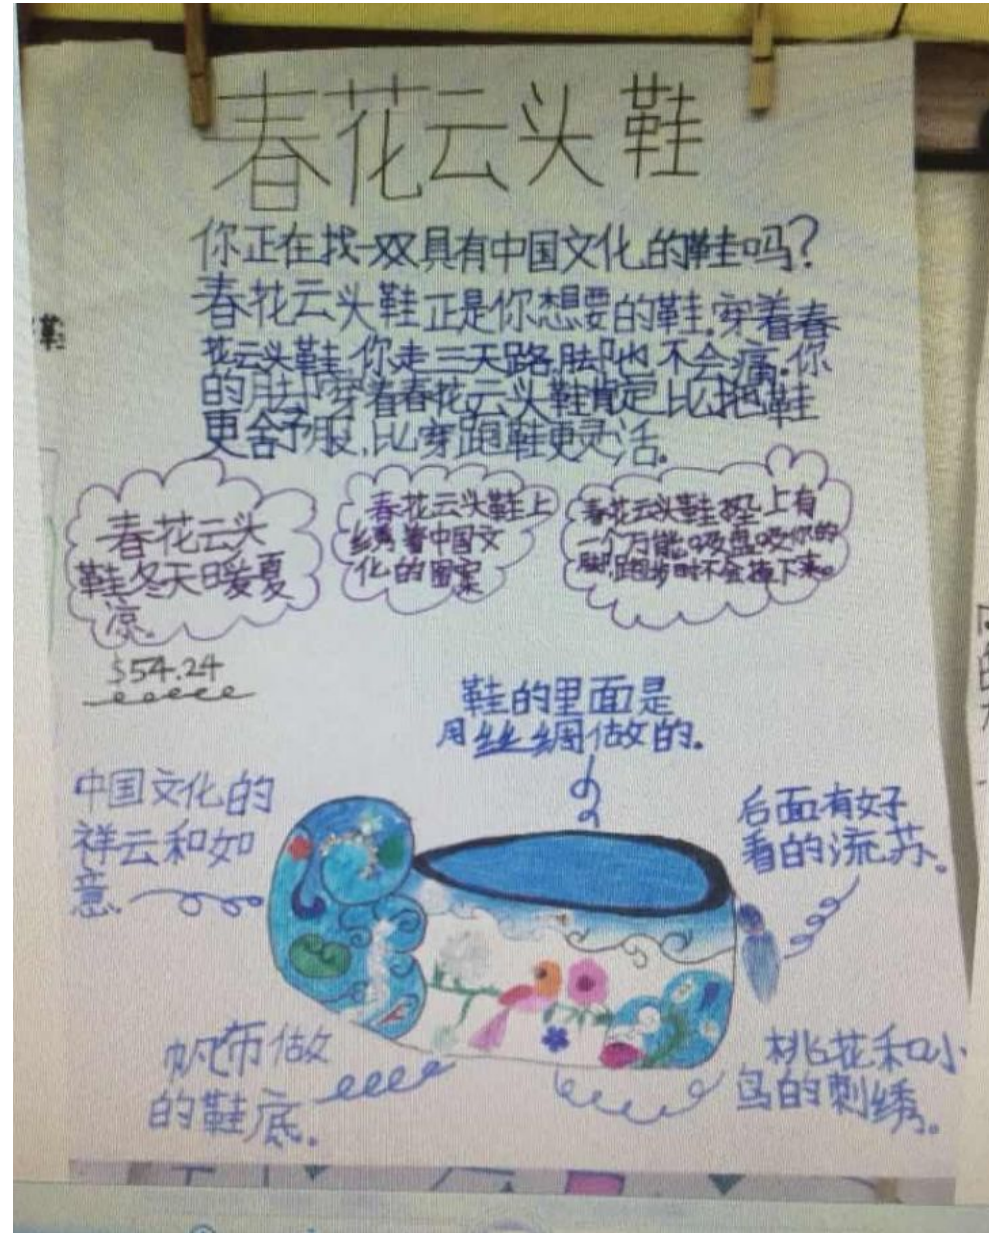 春花云头鞋
你正在找一双具有中国文化的鞋吗?
春花云头鞋正是你想要的鞋.穿着春
花云头鞋,你走三天路,脚也不会痛.你
的脚穿着春花云头鞋肯定比拖鞋
更舒服,比穿跑鞋更灵活。
春花云头
鞋冬天暖夏
凉。
春花云头鞋上
绣着中国文
化的图案
春花云头鞋垫上有
一个万能吸盘吸你的
脚,跑步时不会掉下来。
$54.24
鞋的里面是
用丝绸做的.
中国文化的
祥云和如
意.
后面有好
看的流苏。
帆布做
的鞋底.
桃花和小
鸟的刺绣。
鞋